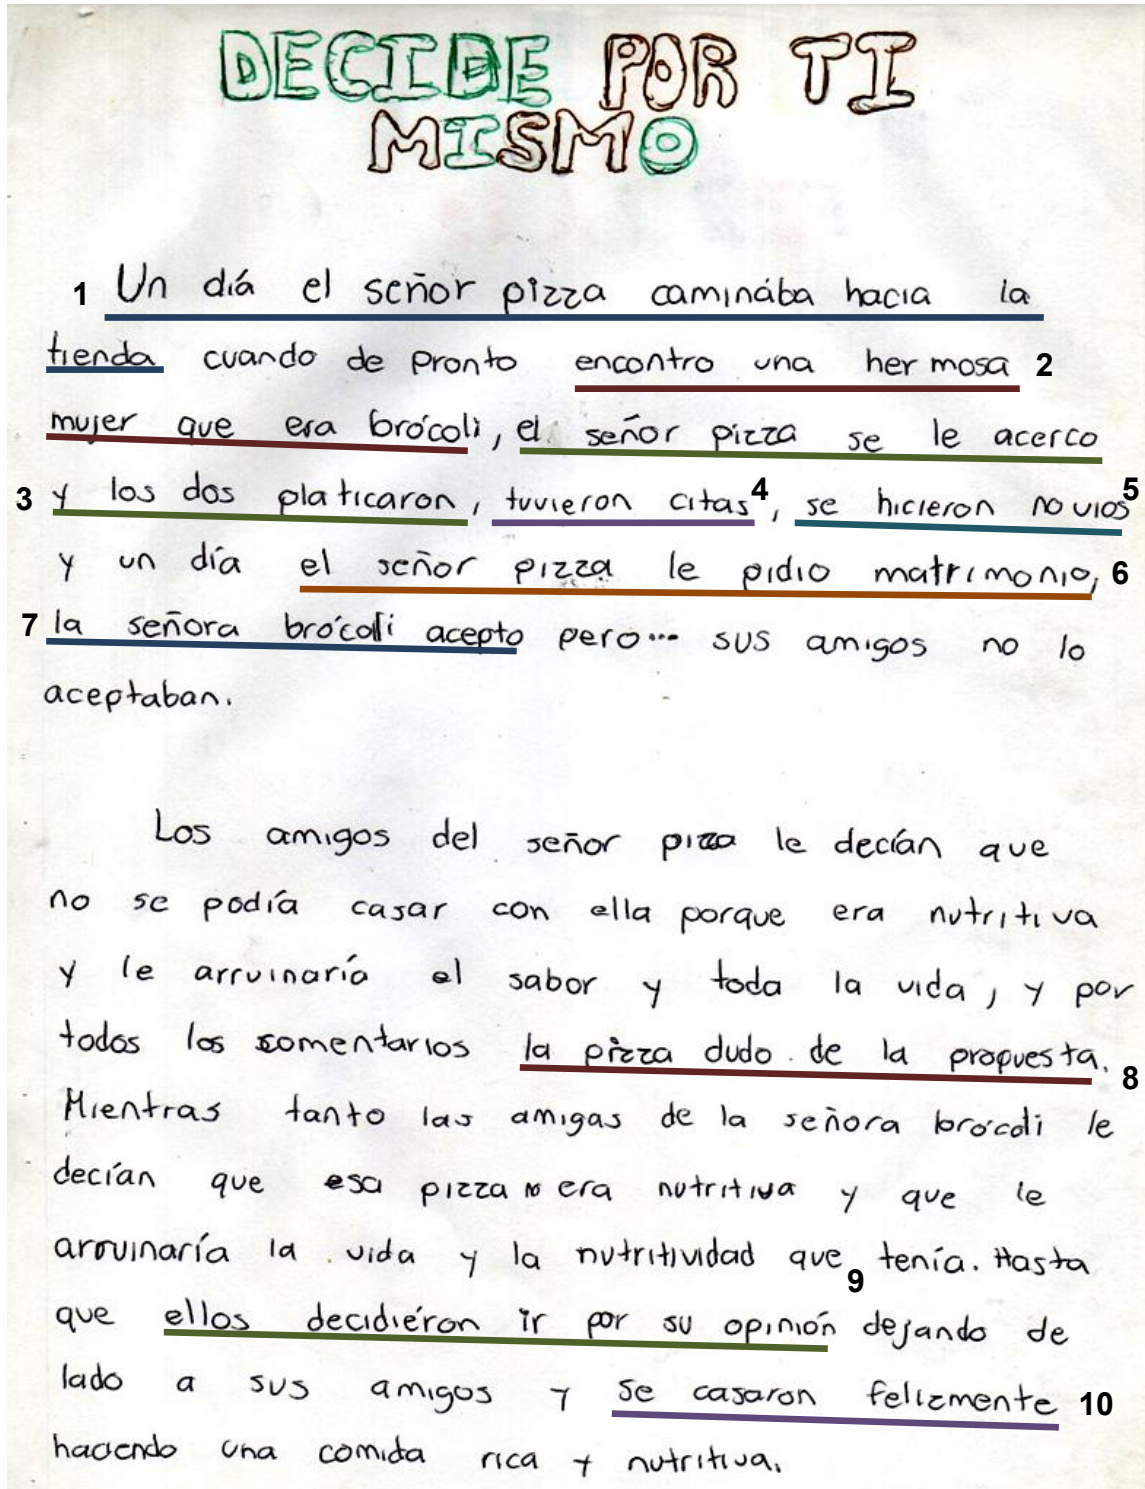 DECIDE POR TI
MISMO
1 Un día el señor pizza caminába hacia la
tienda cuando de pronto encontro una her mosa 2
mujer que era brócoli, el señor pizza se le acerco
3 y los dos platicaron, tuvieron citas 4, se hicieron novios 5
y un día el señor pizza le pidio matrimonio, 6
7 la señora brócoli acepto pero... sus amigos no lo
aceptaban.
Los amigos del señor pizza le decían que
no se podía casar con ella porque era nutritiva
y le arruinaría el sabor y toda la vida, y por
todos los comentarios la pizza dudo de la propuesta. 8
Mientras tanto las amigas de la señora brócoli le
decían que esa pizza era nutritiva y que le
arruinaría la vida y la nutritividad que tenía. Hasta
9
que ellos decidiéron ir por su opinión dejando de
lado a sus amigos y se casaron felizmente 10
haciendo una comida rica y nutritiva.